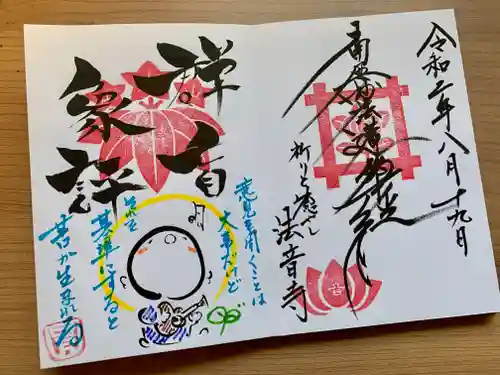 令和二年八月十九日
南無妙法蓮華経
祈りと癒し
法音寺
群盲
象評
意見を聞くことは
大事だけど
それを
基準にすると
苦が生まれる